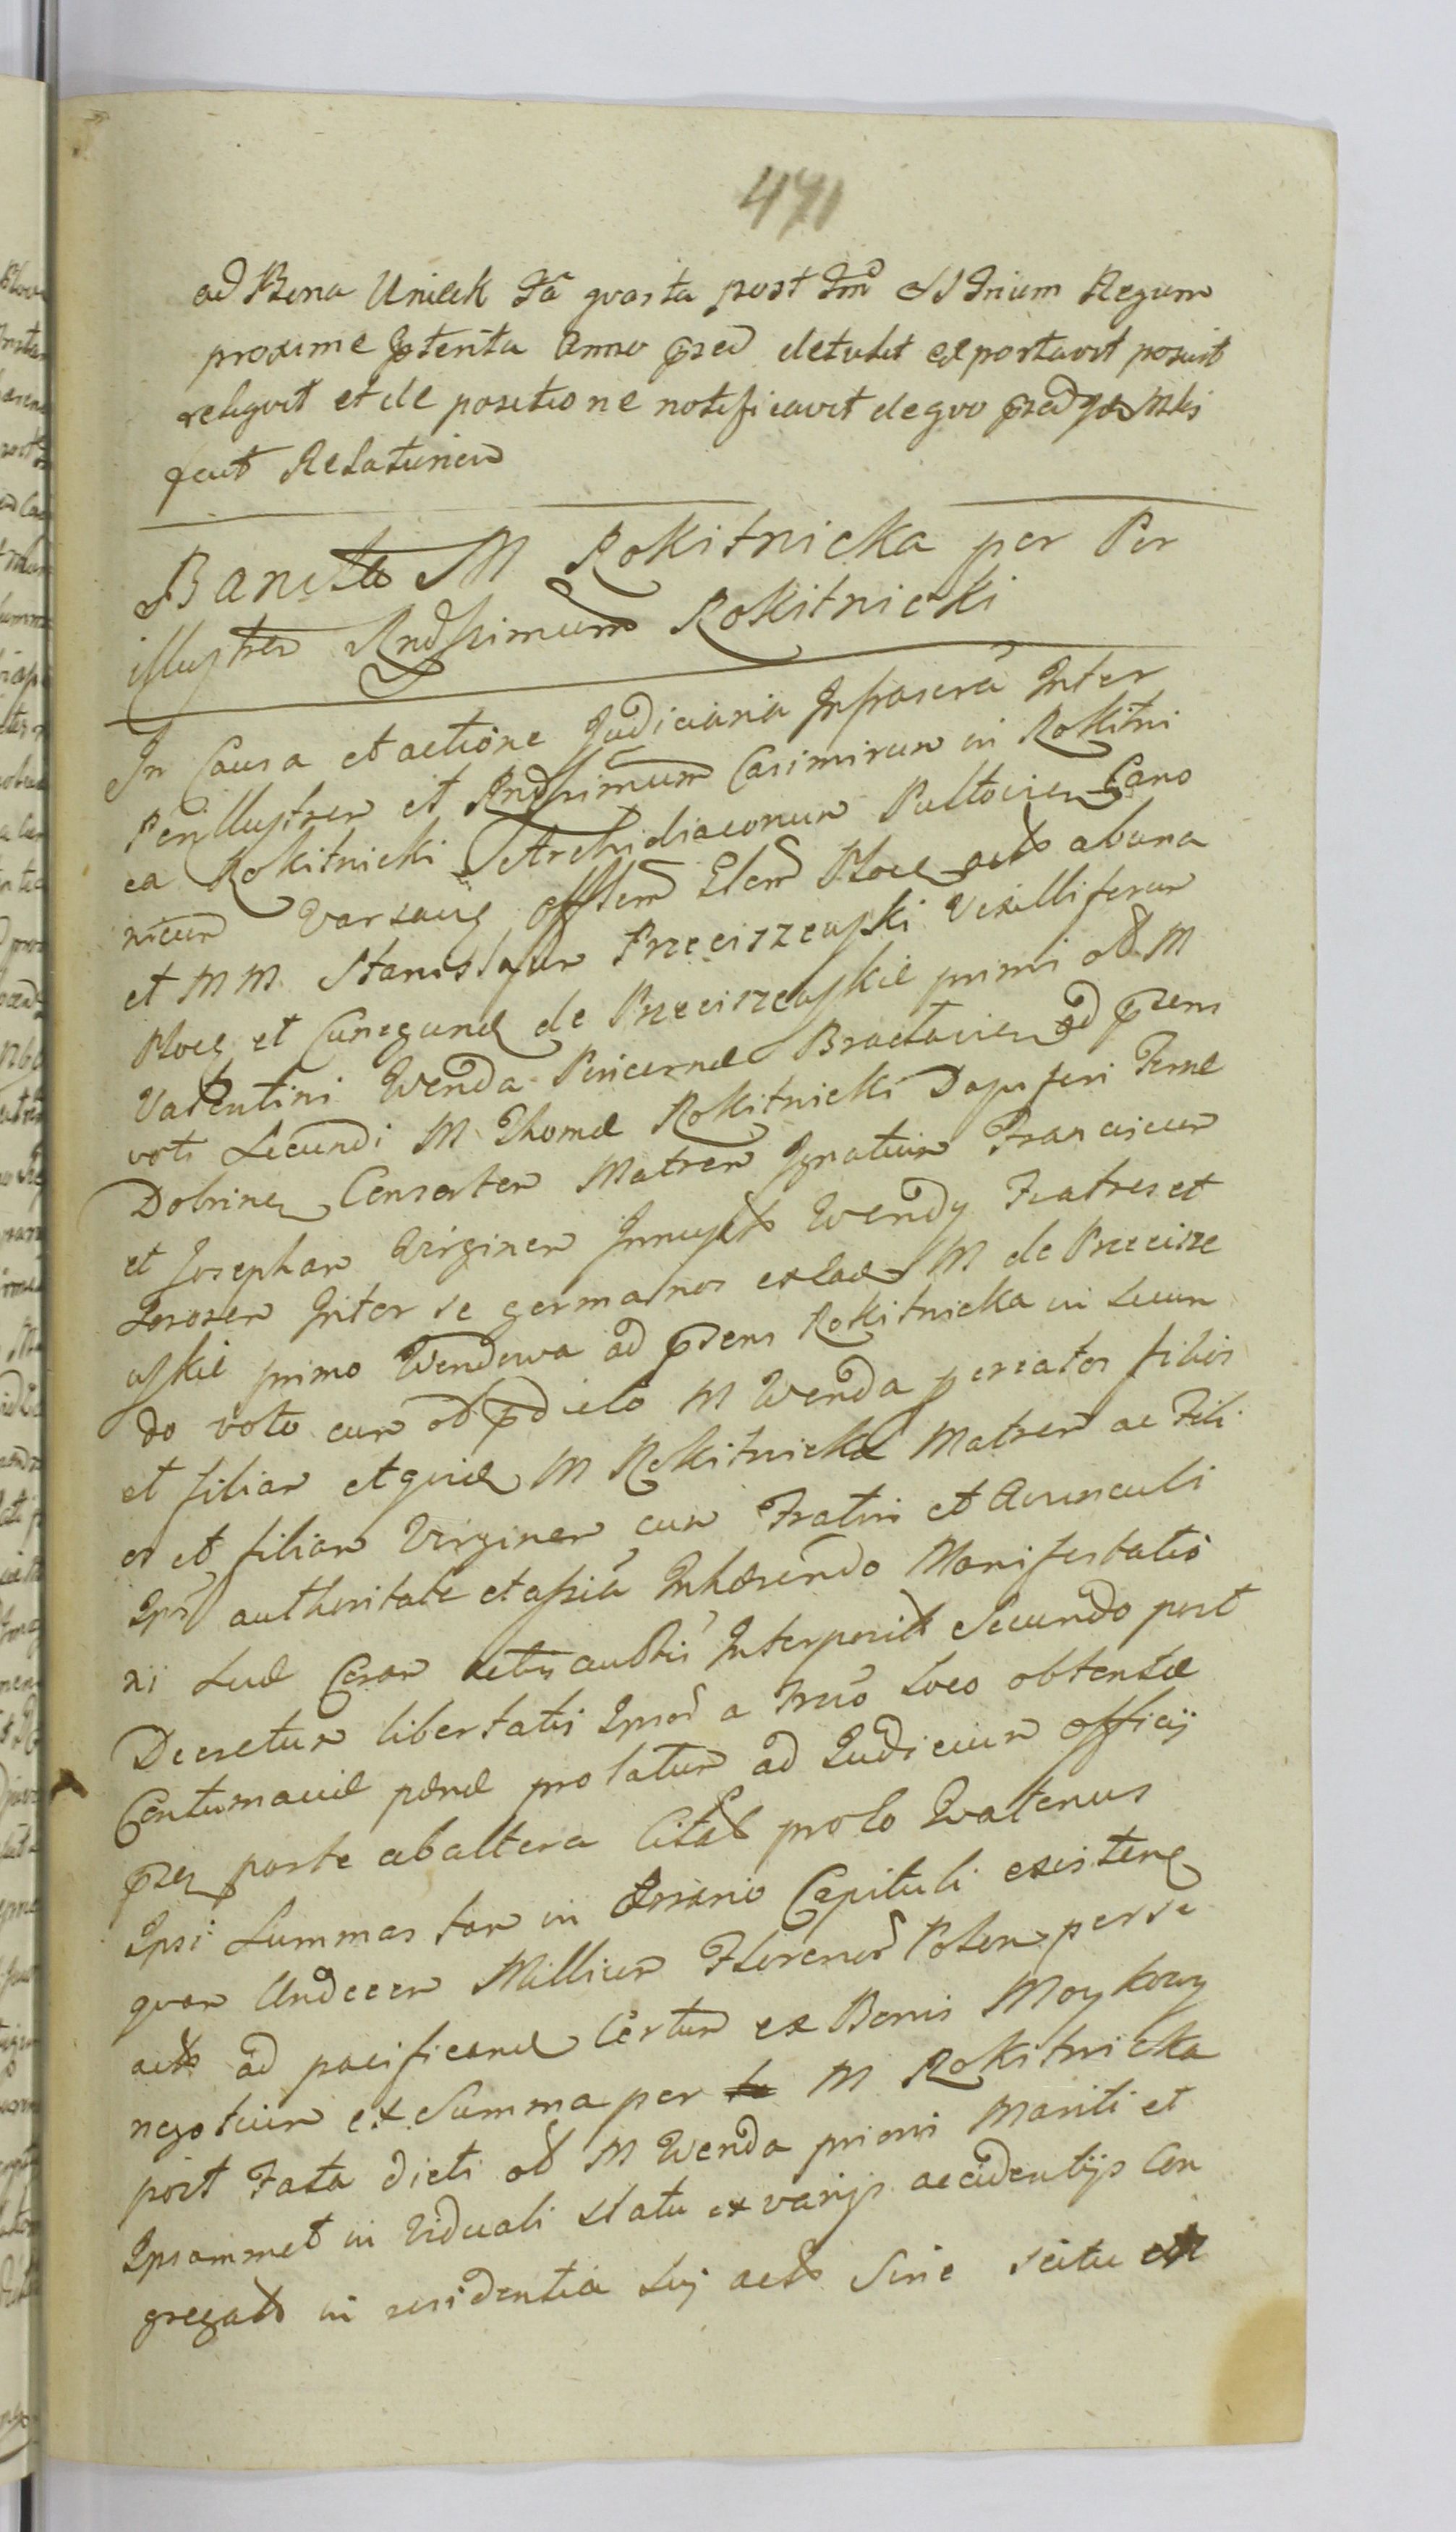 471
ad Bona Unieck fa quarta post fm SS Trium Regum
proxime ptenta Anno pred detulit exportavit posuit
reliquit et de positione notificavit dequo pred
fecit Relationem
Banita M Rokitnicka per Per
illustrem Rndssimum Rokitnicki
In Causa et actione Judiciaria Infrascra Inter
Perillustrem et Rndssimum Casimirum in Rokitni
ca Rokitnicki Archidiaconum Pultovien Cano
nicum Varsavien Offlem Glem Plocen actoB abuna
et M M. Stanislaum Przeciszewski Vexilliferum
Plocen et Cunegundem de Przeciszewskie primi olt M
Valentini Wenda Pincernae Braclavien ad prens
voti Secundi M Thomae Rokitnicki Dapiferi Terrae
Dobrinen Consortem Matrem Ignatium Franciscum
et Josepham Virginem Innuptam Wendy Fratres et
Sororem Inter se germanos exlae M de Przecisze
wskie primo Wendowa ad prens Rokitnicka in Secun
do voto cum olt pdicto M Wenda procreatos filios
et filiam et quidem M Rokitnicka Matrem ac Fili
os et filiam Virginem cum Fratrii et Avunculi
Ipso authoritate et assia Inhaerendo Manifestatio
ni Suae Coram actis authcis Interpositae Secundo post
Decretum libertatis Ipsor a Trno loco obtentae
Contumaciae paenae prolatum ad Judicium officij
pren parte ab altera Citatos prolo Quatenus
Ipsi Summas tam in Errario Capituli existen
quam Undecem Millium Florenor Polon per se
act ad pacificand Certum ex Bonis Moykowy
negotium ex Summa per M Rokitnicka
post Fata dicti olt M Wenda primi Mariti et
Ipsammet in Viduali statu ex varijs accidentijs Con
gregat in residentia Suj act Sine scitu et